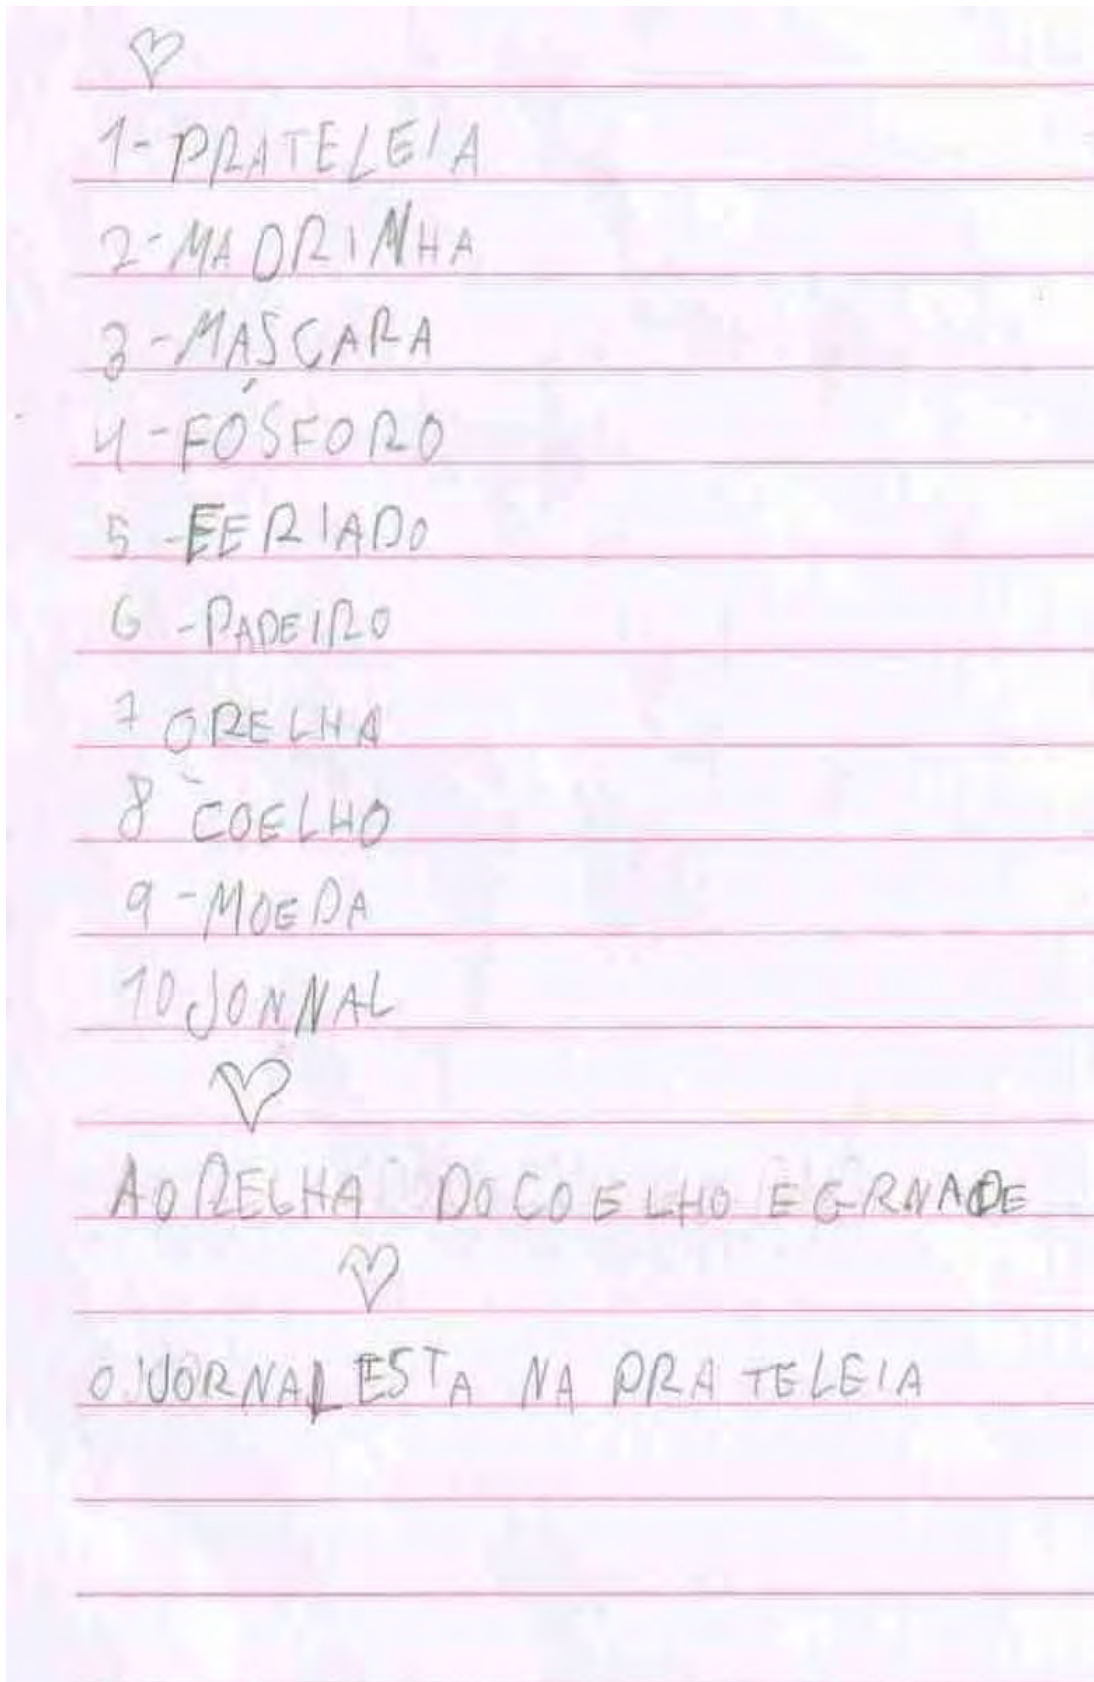 1-PRATELEIA
2-MADRINHA
3-MASCARA
4-FÓSFORO
5-FERIADO
6-PADEIRO
7 ORELHA
8 COELHO
9-MOEDA
10 JONNAL
AORELHA DOCOELHO EGRNADE
O JORNAL ESTA NA PRATELEIA